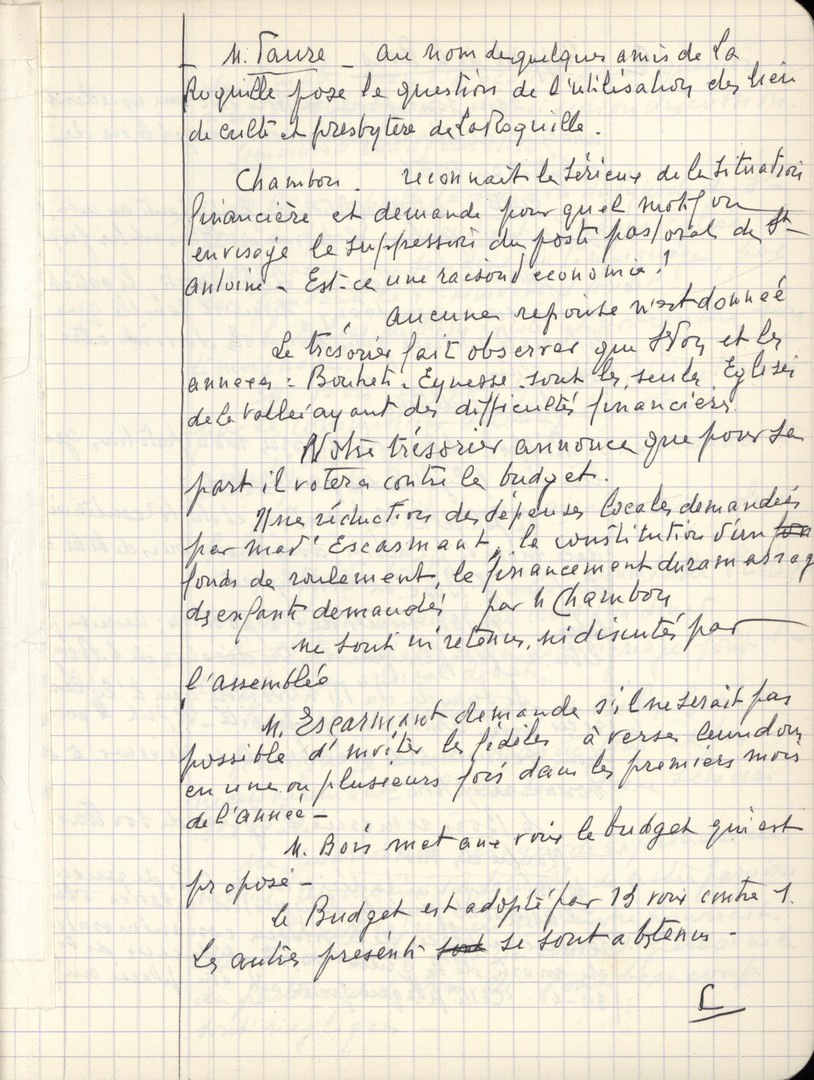 M. Faure _ au nom de quelques amis de La
Roquille pose la question de l'utilisation des lieu
de culte et presbytère de La Roquille.
Chambon. reconnait le sérieux de la situation
financière et demande pour quel motif on
envisage la suppression du poste pastoral de St
Antoine - Est-ce une raison d'économie?
aucune réponse n'est donnée
Le trésorier fait observer que et les
annexes: Eynesse sont les seules Eglises
de la vallée ayant des difficultés financières.
Notre trésorier annonce que pour sa
part il votera contre le budget.
Une réduction des dépenses locales demandées
par Escarmant, la constitution d'un
fonds de roulement, le financement du ramassag
des enfants demandés par M Chambon
ne sont ni retenus, ni discutés par
l'assemblée
M. Escarmant demande s'il ne serait pas
possible d'inviter les fidèles à verser leur don
en une ou plusieurs fois dans les premiers mois
de l'année -
M. Bois met aux voix le budget qui est
proposé -
Le Budget est adopté par voix contre 1.
Les autres présents sont se sont abstenus -